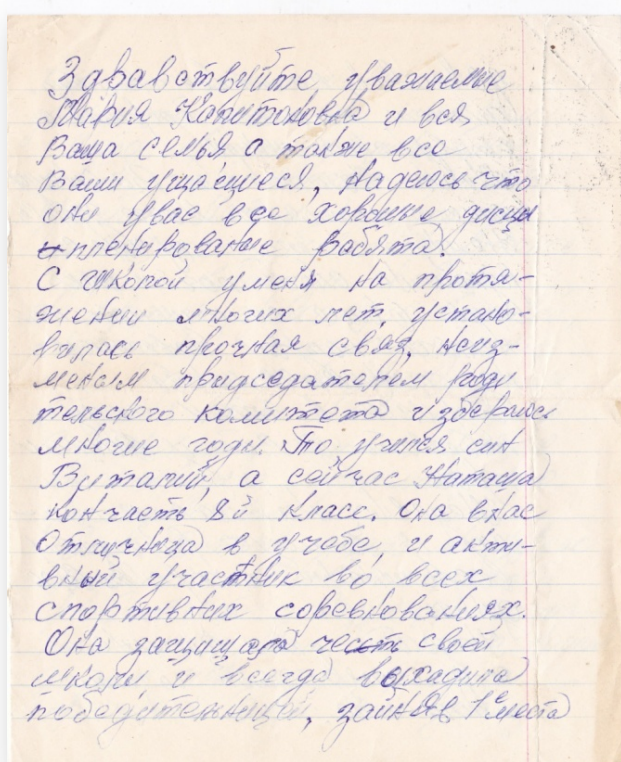 Здравствуйте уважаемые
Мария Капитоновна и вся
Ваша семья а также все
Ваши учащиеся, надеюсь что
они у вас все хорошие, дисци
пленирование ребята.
С школой у меня на протя-
жении многих лет, устано-
вилась прочная связ, неиз-
менным председателем роди
тельского комитета избераюсь
многие годы. То учился син
Виталий, а сейчас Наташа
кончаеть 8й класс. Она внас
Отличница в учебе, и акти-
вный участник во всех
спортивних соревнованиях.
Она защищала честь своей
школи и всегда выхадила
победительницей, зайняв 1е места